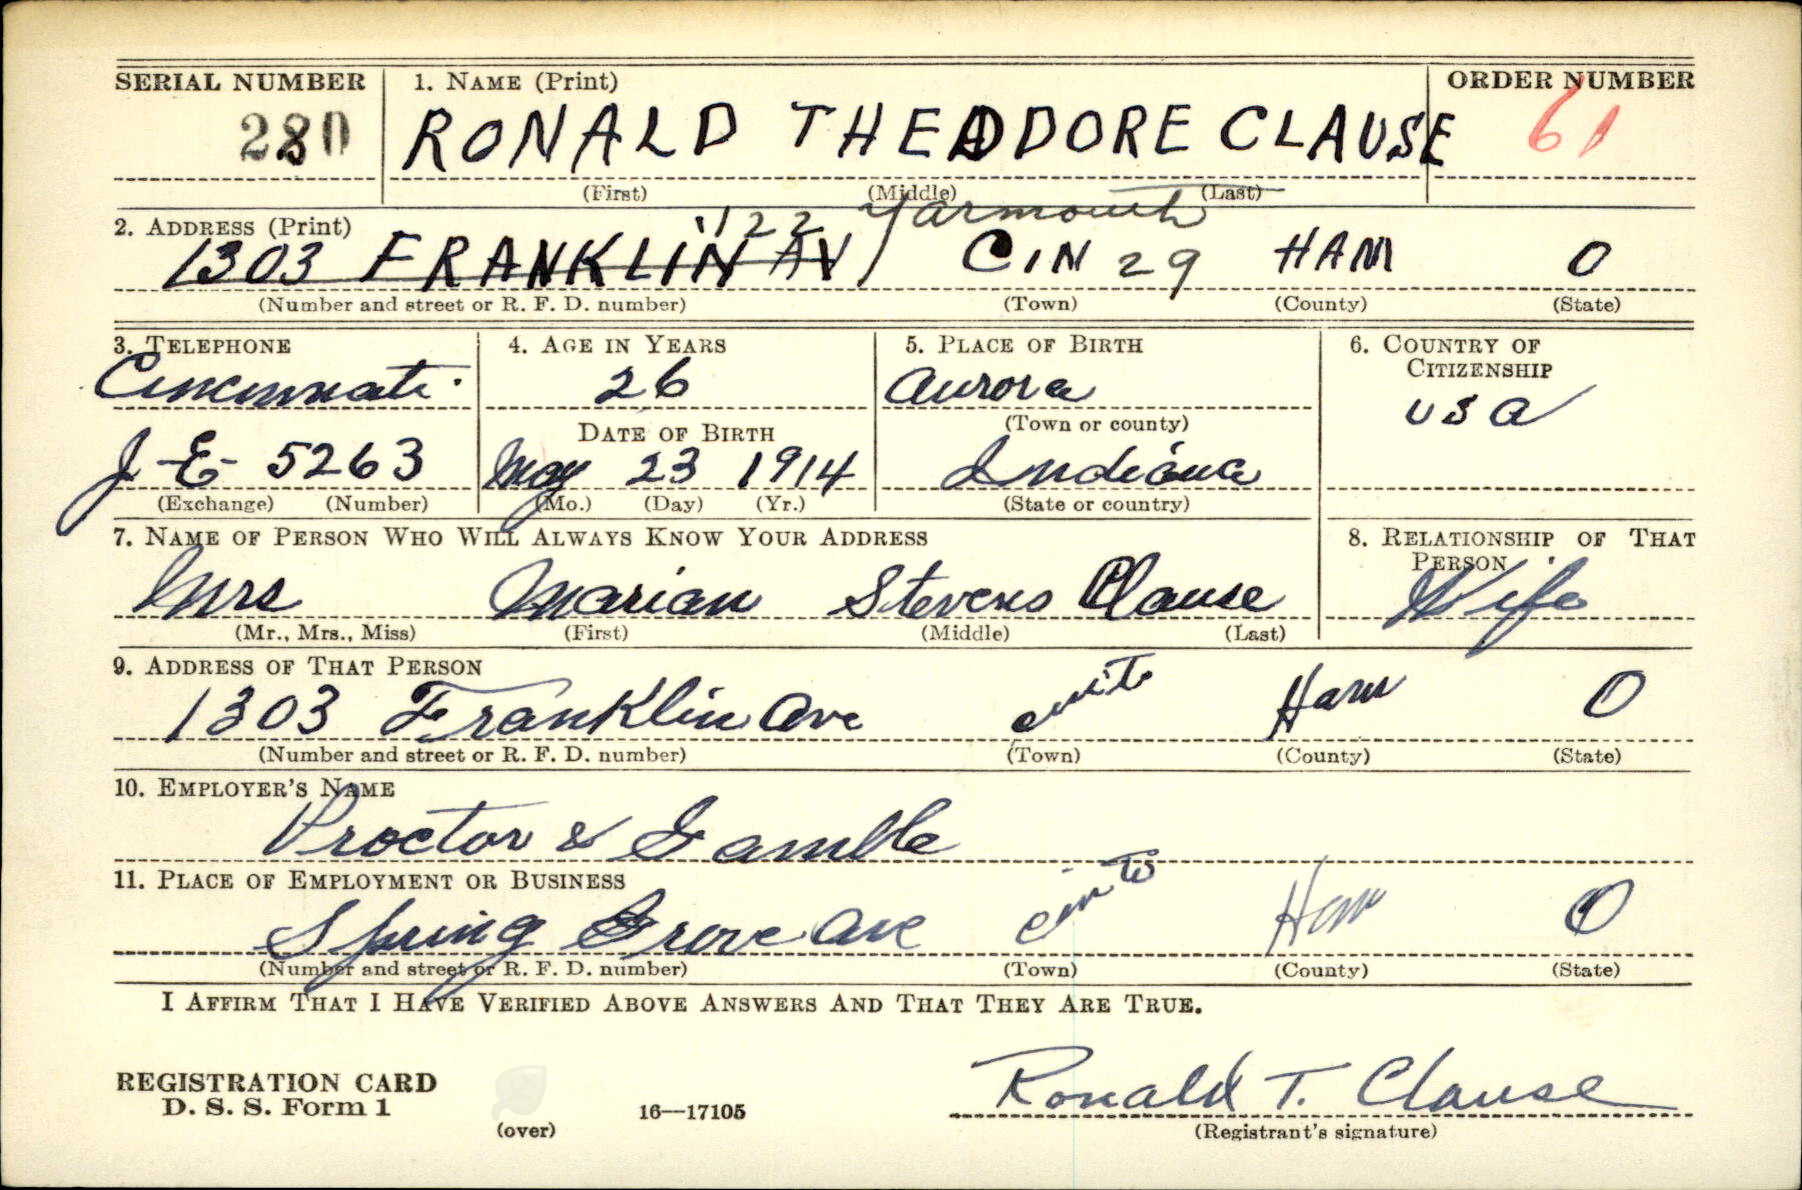 SERIAL NUMBER 1. NAME (Print) ORDER NUMBER
280 RONALD THEADORE CLAUSE 61
(First) (Middle) (Last)
122 Yarmouth
2. ADDRESS (Print)
1303 FRANKLIN AV CIN 29 HAM O
(Number and street or R. F. D. number) (Town) (County) (State)
3. TELEPHONE 4. AGE IN YEARS 5. PLACE OF BIRTH 6. COUNTRY OF CITIZENSHIP
Cincinnati 26 Aurora USA
DATE OF BIRTH (Town or county)
J-E- 5263 May 23 1914 Indiana
(Exchange) (Number) (Mo.) (Day) (Yr.) (State or country)
7. NAME OF PERSON WHO WILL ALWAYS KNOW YOUR ADDRESS 8. RELATIONSHIP OF THAT PERSON
Mrs Marian Stevens Clause Wife
(Mr., Mrs., Miss) (First) (Middle) (Last)
9. ADDRESS OF THAT PERSON
1303 Franklin Ave Ham O
(Number and street or R. F. D. number) (Town) (County) (State)
10. EMPLOYER'S NAME
Proctor & Gamble
11. PLACE OF EMPLOYMENT OR BUSINESS
Spring Grove Ave Ham O
(Number and street or R. F. D. number) (Town) (County) (State)
I AFFIRM THAT I HAVE VERIFIED ABOVE ANSWERS AND THAT THEY ARE TRUE.
REGISTRATION CARD Ronald T. Clause
D. S. S. Form 1 16—17105
(over) (Registrant's signature)